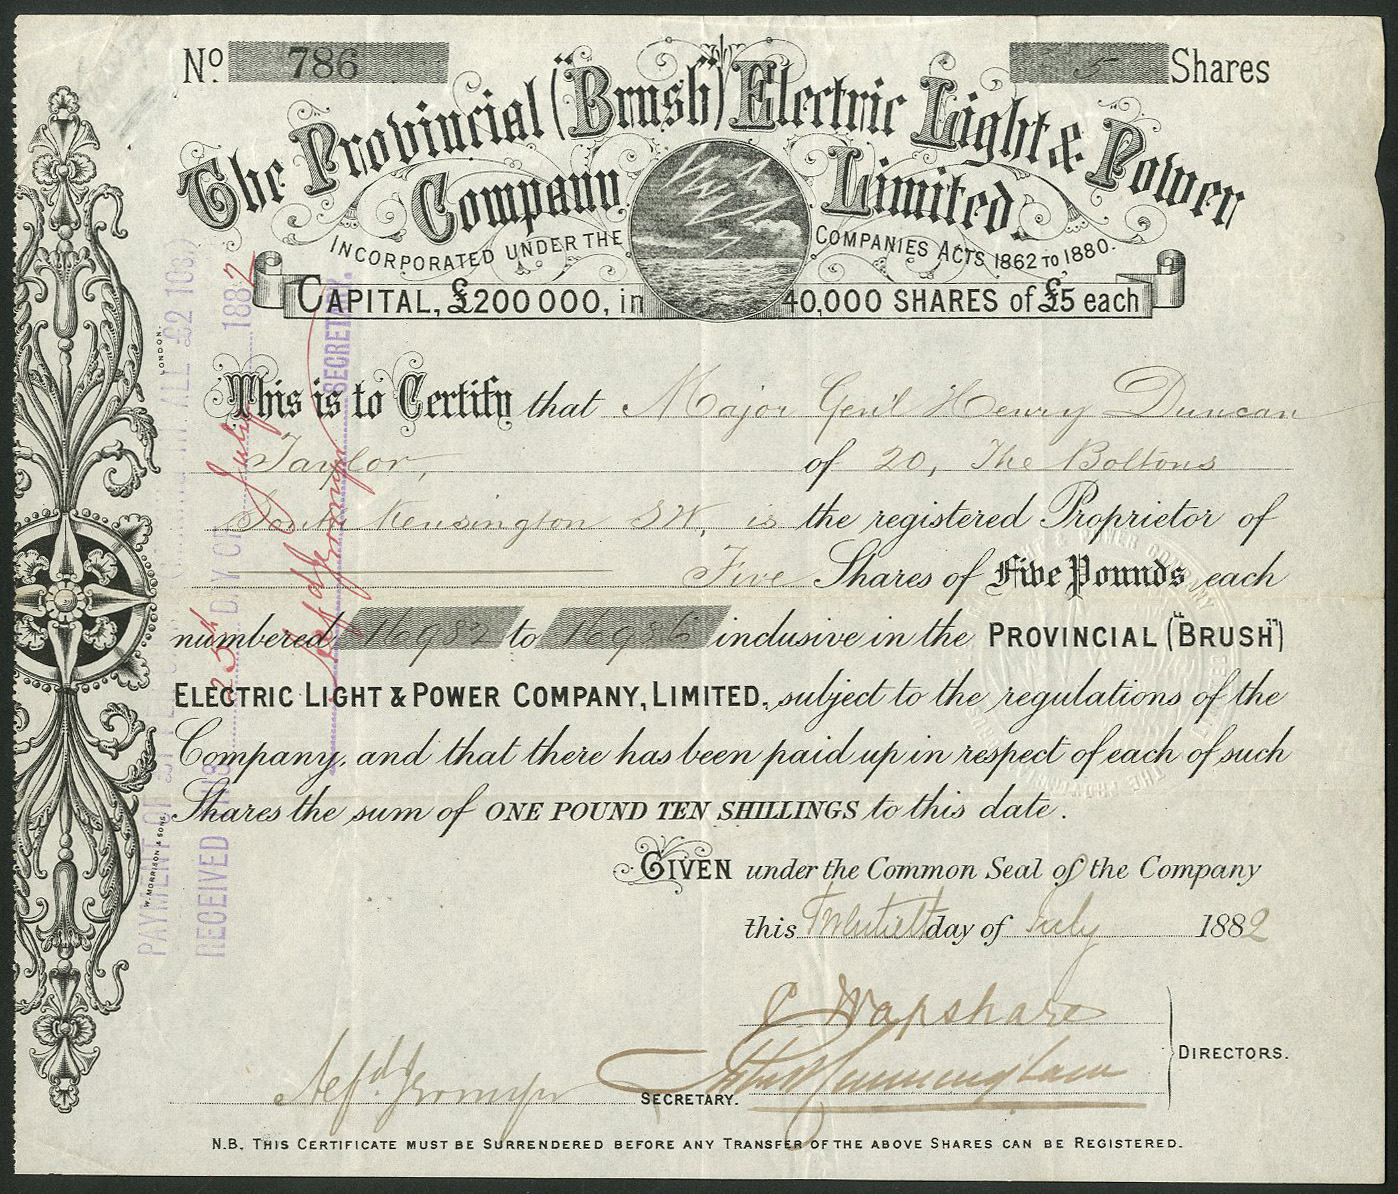 No. 786
5 Shares
The Provincial ("Brush") Electric Light & Power
Company Limited.
INCORPORATED UNDER THE COMPANIES ACTS 1862 TO 1880.
CAPITAL, £200000, in 40,000 SHARES of £5 each
This is to Certify that Major Genl Henry Duncan
Taylor, of 20, The Boltons
South Kensington SW, is the registered Proprietor of
Five Shares of Five Pounds each
numbered 16982 to 16986 inclusive in the PROVINCIAL ("BRUSH")
ELECTRIC LIGHT & POWER COMPANY, LIMITED, subject to the regulations of the
Company, and that there has been paid up in respect of each of such
Shares the sum of ONE POUND TEN SHILLINGS to this date.
GIVEN under the Common Seal of the Company
this Twentieth day of July 1882
C Wapshare
Cunningham
DIRECTORS.
SECRETARY.
N.B. THIS CERTIFICATE MUST BE SURRENDERED BEFORE ANY TRANSFER OF THE ABOVE SHARES CAN BE REGISTERED.
W. MORRISON & SONS, LONDON.
PAYMENT OF IN ALL £2 10s.)
RECEIVED THIS 25th DAY OF July 1882
SECRETARY.